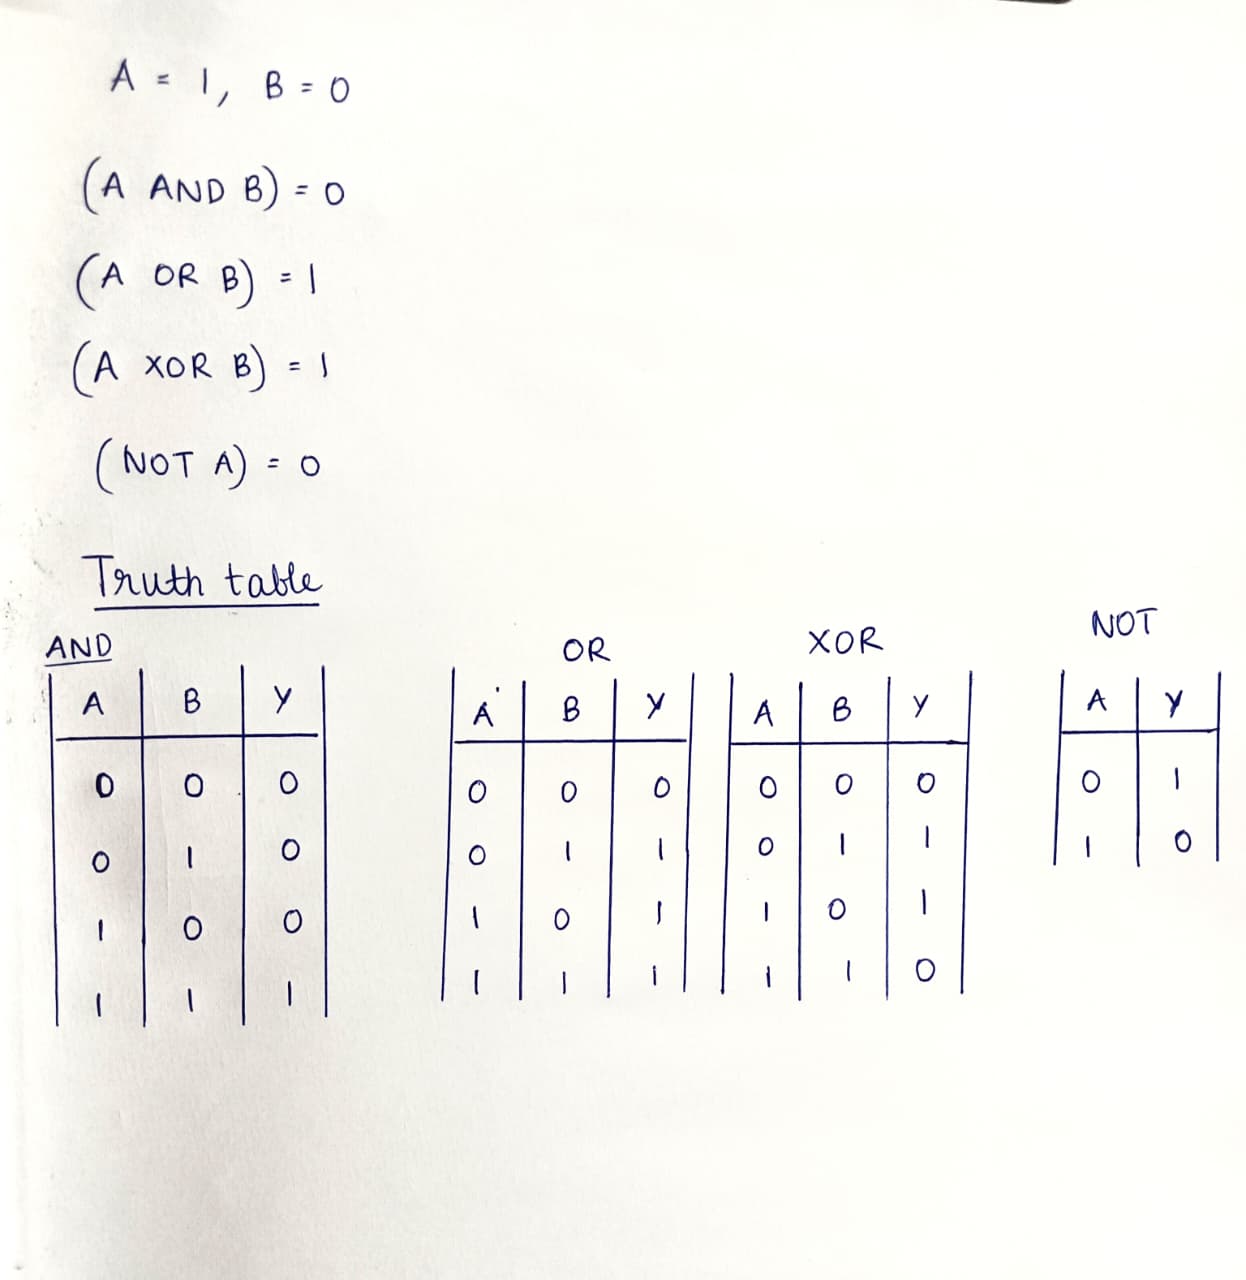 A = 1, B = 0
(A AND B) = 0
(A OR B) = 1
(A XOR B) = 1
(NOT A) = 0
Truth table
AND
A B Y
0 0 0
0 1 0
1 0 0
1 1 1
OR
A B Y
0 0 0
0 1 1
1 0 1
1 1 1
XOR
A B Y
0 0 0
0 1 1
1 0 1
1 1 0
NOT
A Y
0 1
1 0